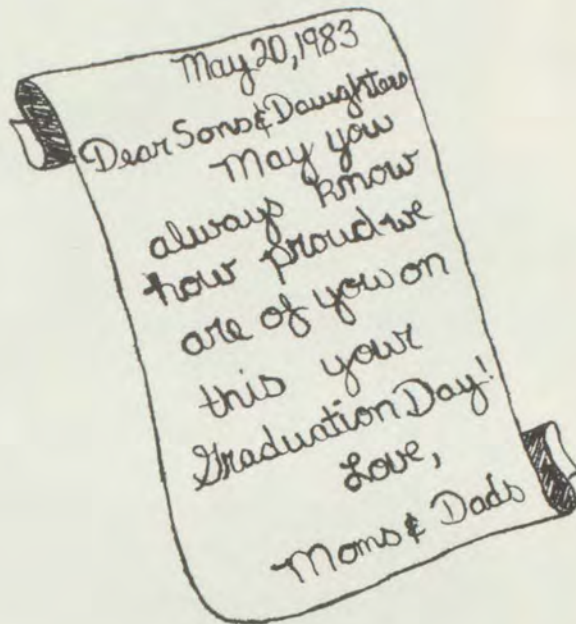 May 20, 1983
Dear Sons & Daughters
May you
always know
how proud we
are of you on
this your
Graduation Day!
Love,
Moms & Dads